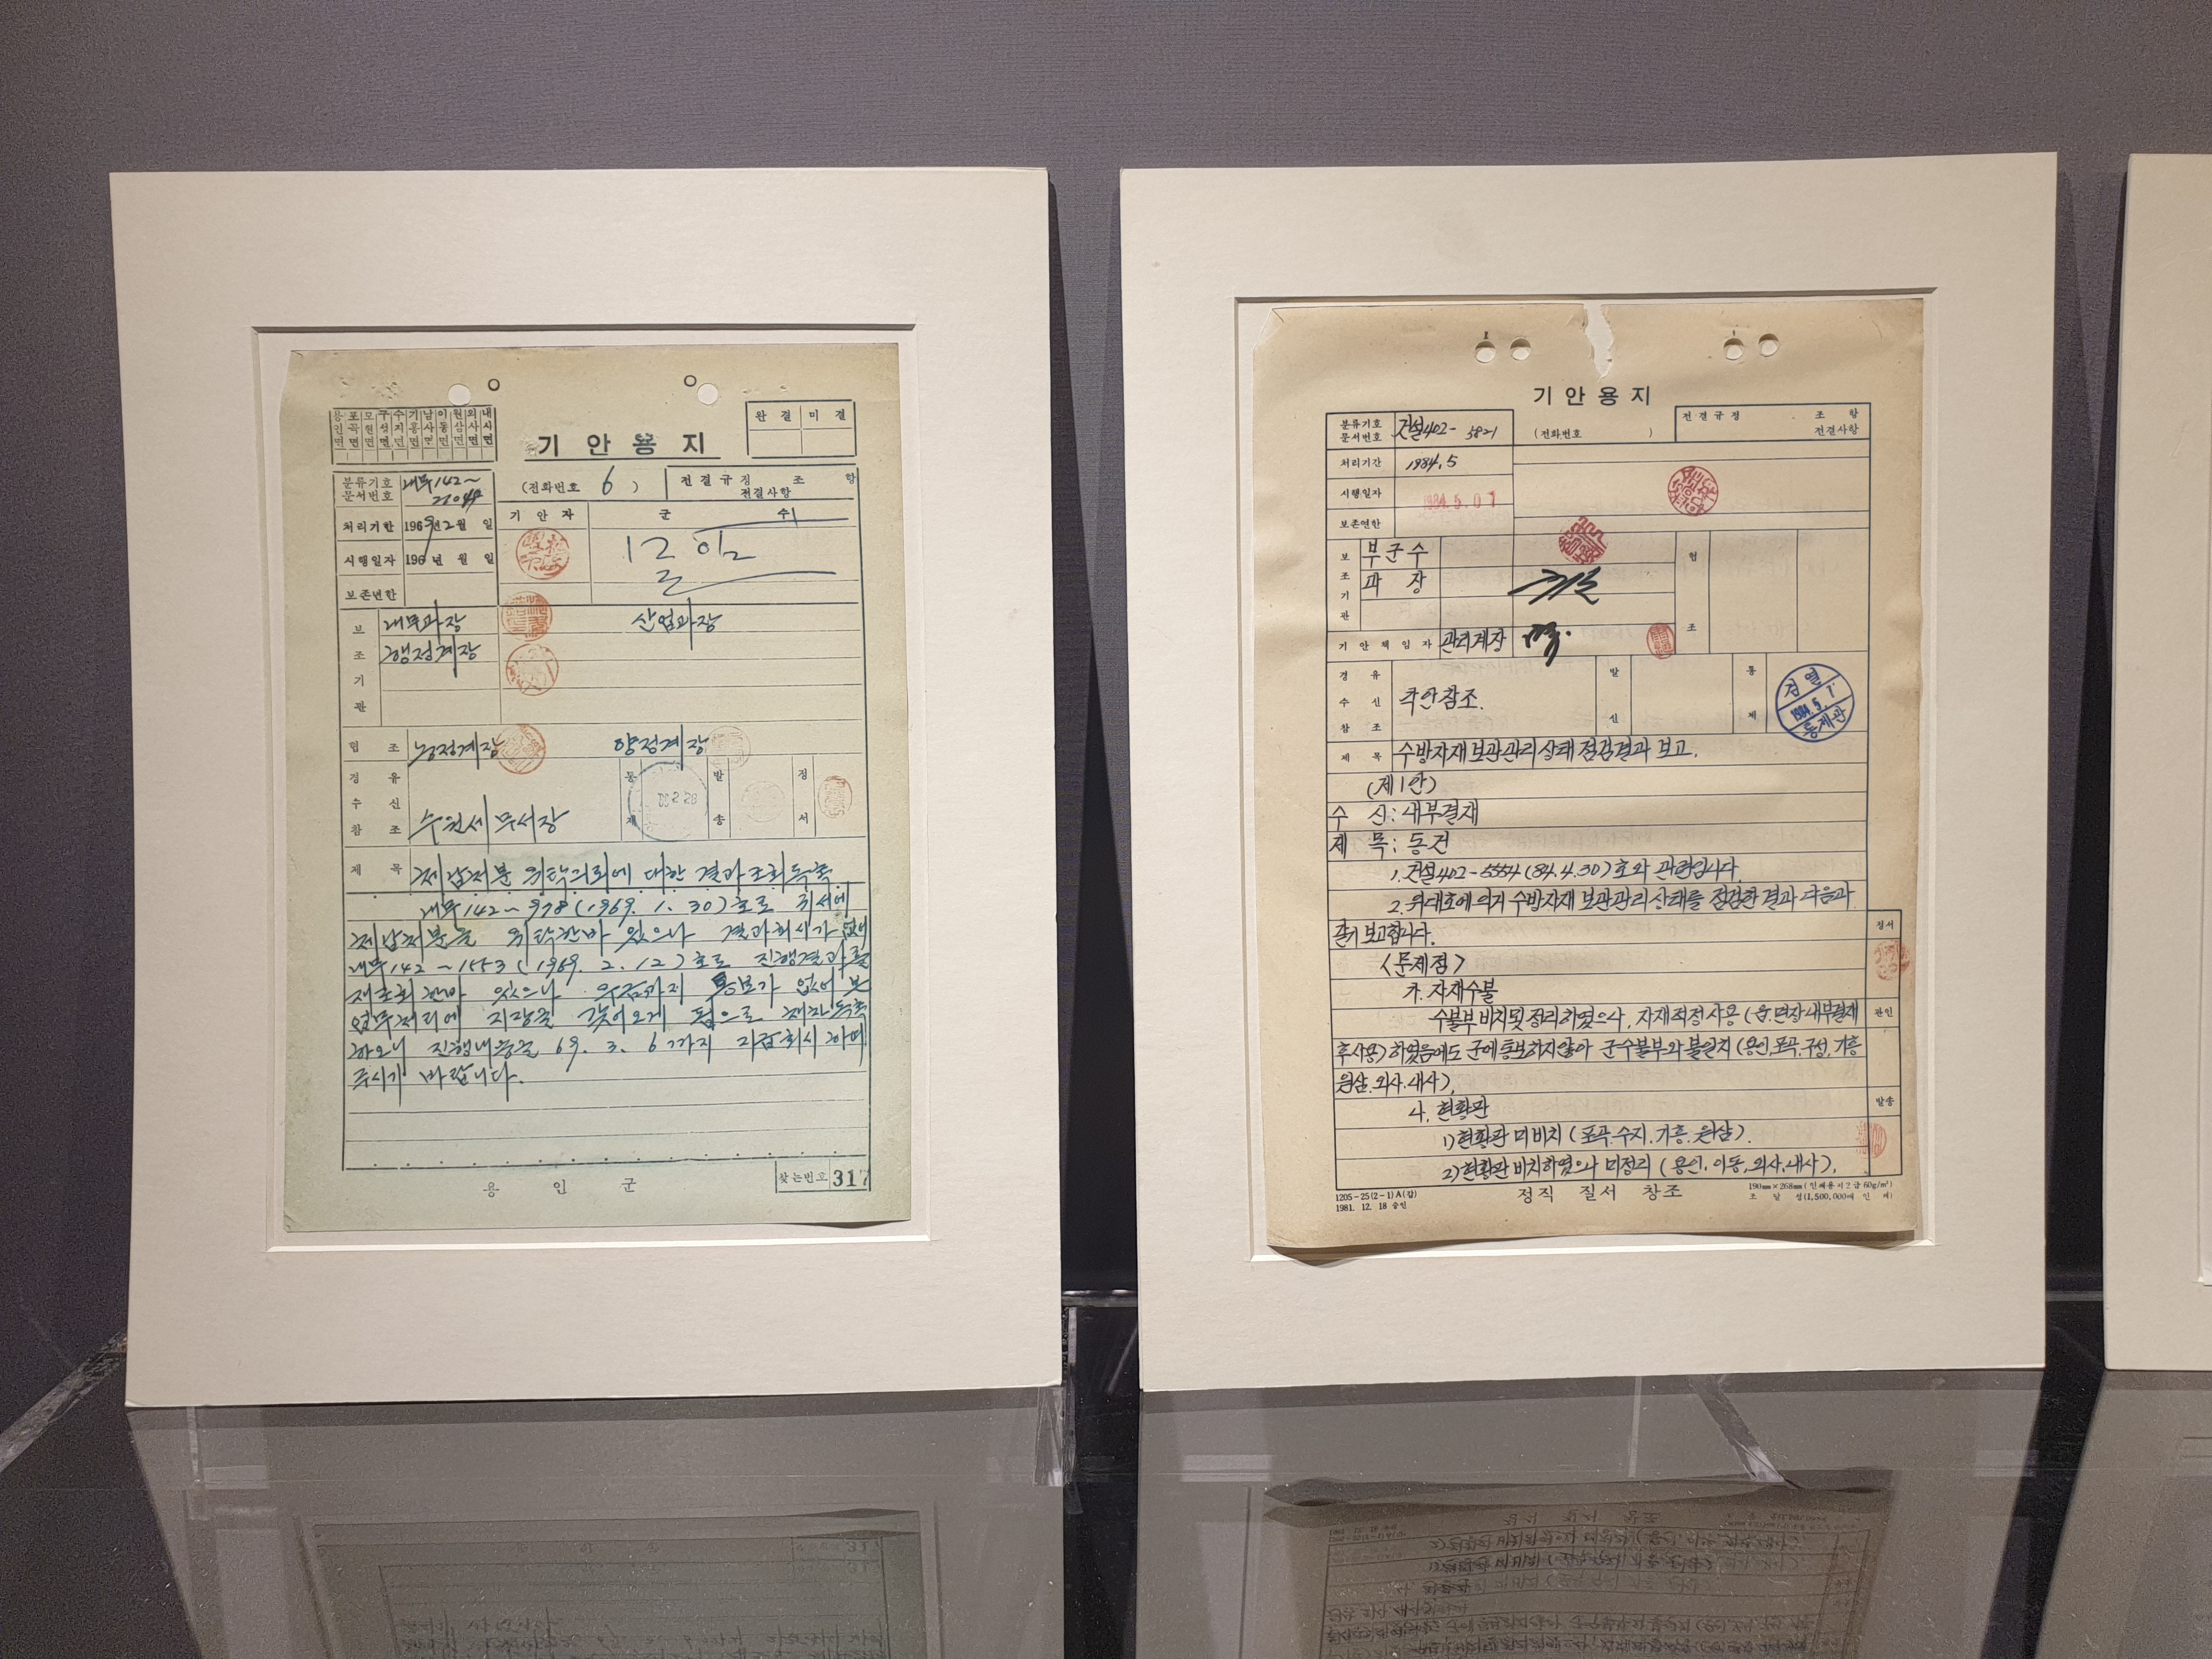 용인면 포곡면 모현면 구성면 수지면 기흥면 남사면 이동면 원삼면 외사면 내사면
완결 미결
기안용지
분류기호 문서번호 내무142~
(전화번호 6 )
전결규정 조 항
전결사항
처리기한 1969년 2월 일
기안자 군 수
시행일자 196 년 월 일
보존년한
보조기관 내무과장 산업과장
행정계장
협조 농정계장 양정계장
경유 수신 참조 수원세무서장
통제 발송 정서
제목 체납처분 위탁의뢰에 대한 결과조회독촉
내무142~978(1969. 1. 30)호로 귀서에
체납처분을 위탁한바 있으나 결과회시가 없어
내무142~1553(1969. 2. 12)호로 진행결과를
재조회한바 있으나 우금까지 통보가 없어 본
업무처리에 지장을 갖어오게 됨으로 재차독촉
하오니 진행내용을 69. 3. 6까지 회시하여
주시기 바랍니다.
용인군
찾는번호 317
기안용지
분류기호 문서번호 건설402-5821
(전화번호 )
전결규정 . 조 항
전결사항
처리기간 1984. 5
시행일자 1984. 5. 01
보존연한
보조기관 부군수
과장
협조
기안책임자 관리계장
경유 수신 참조 각안참조.
발신 통제
검열
1984. 5. 1
통제관
제목 수방자재 보관관리 상태 점검결과 보고.
(제1안)
수 신: 내부결재
제 목: 동건
1. 건설402-5554(84.4.30)호와 관련입니다.
2. 위대호에 의거 수방자재 보관관리 상태를 점검한 결과 다음과
같이 보고합니다.
정서
<문제점>
가. 자재수불
수불부 비치및 정리하였으나, 자재적정사용(읍.면장 내부결재
관인
후사용)하였음에도 군에통보하지않아 군수불부와 불일치(용인.포곡.구성.기흥
원삼.외사.내사).
나. 현황판
발송
1)현황판 미비치 (포곡.수지.기흥.원삼).
2)현황판 비치하였으나 미정리 (용인. 이동.외사.내사).
1205-25(2-1)A(갑)
1981. 12. 18 승인
정직 질서 창조
190mm×268mm(인쇄용지2급 60g/m²)
조 달 청(1,500,000매 인 쇄)